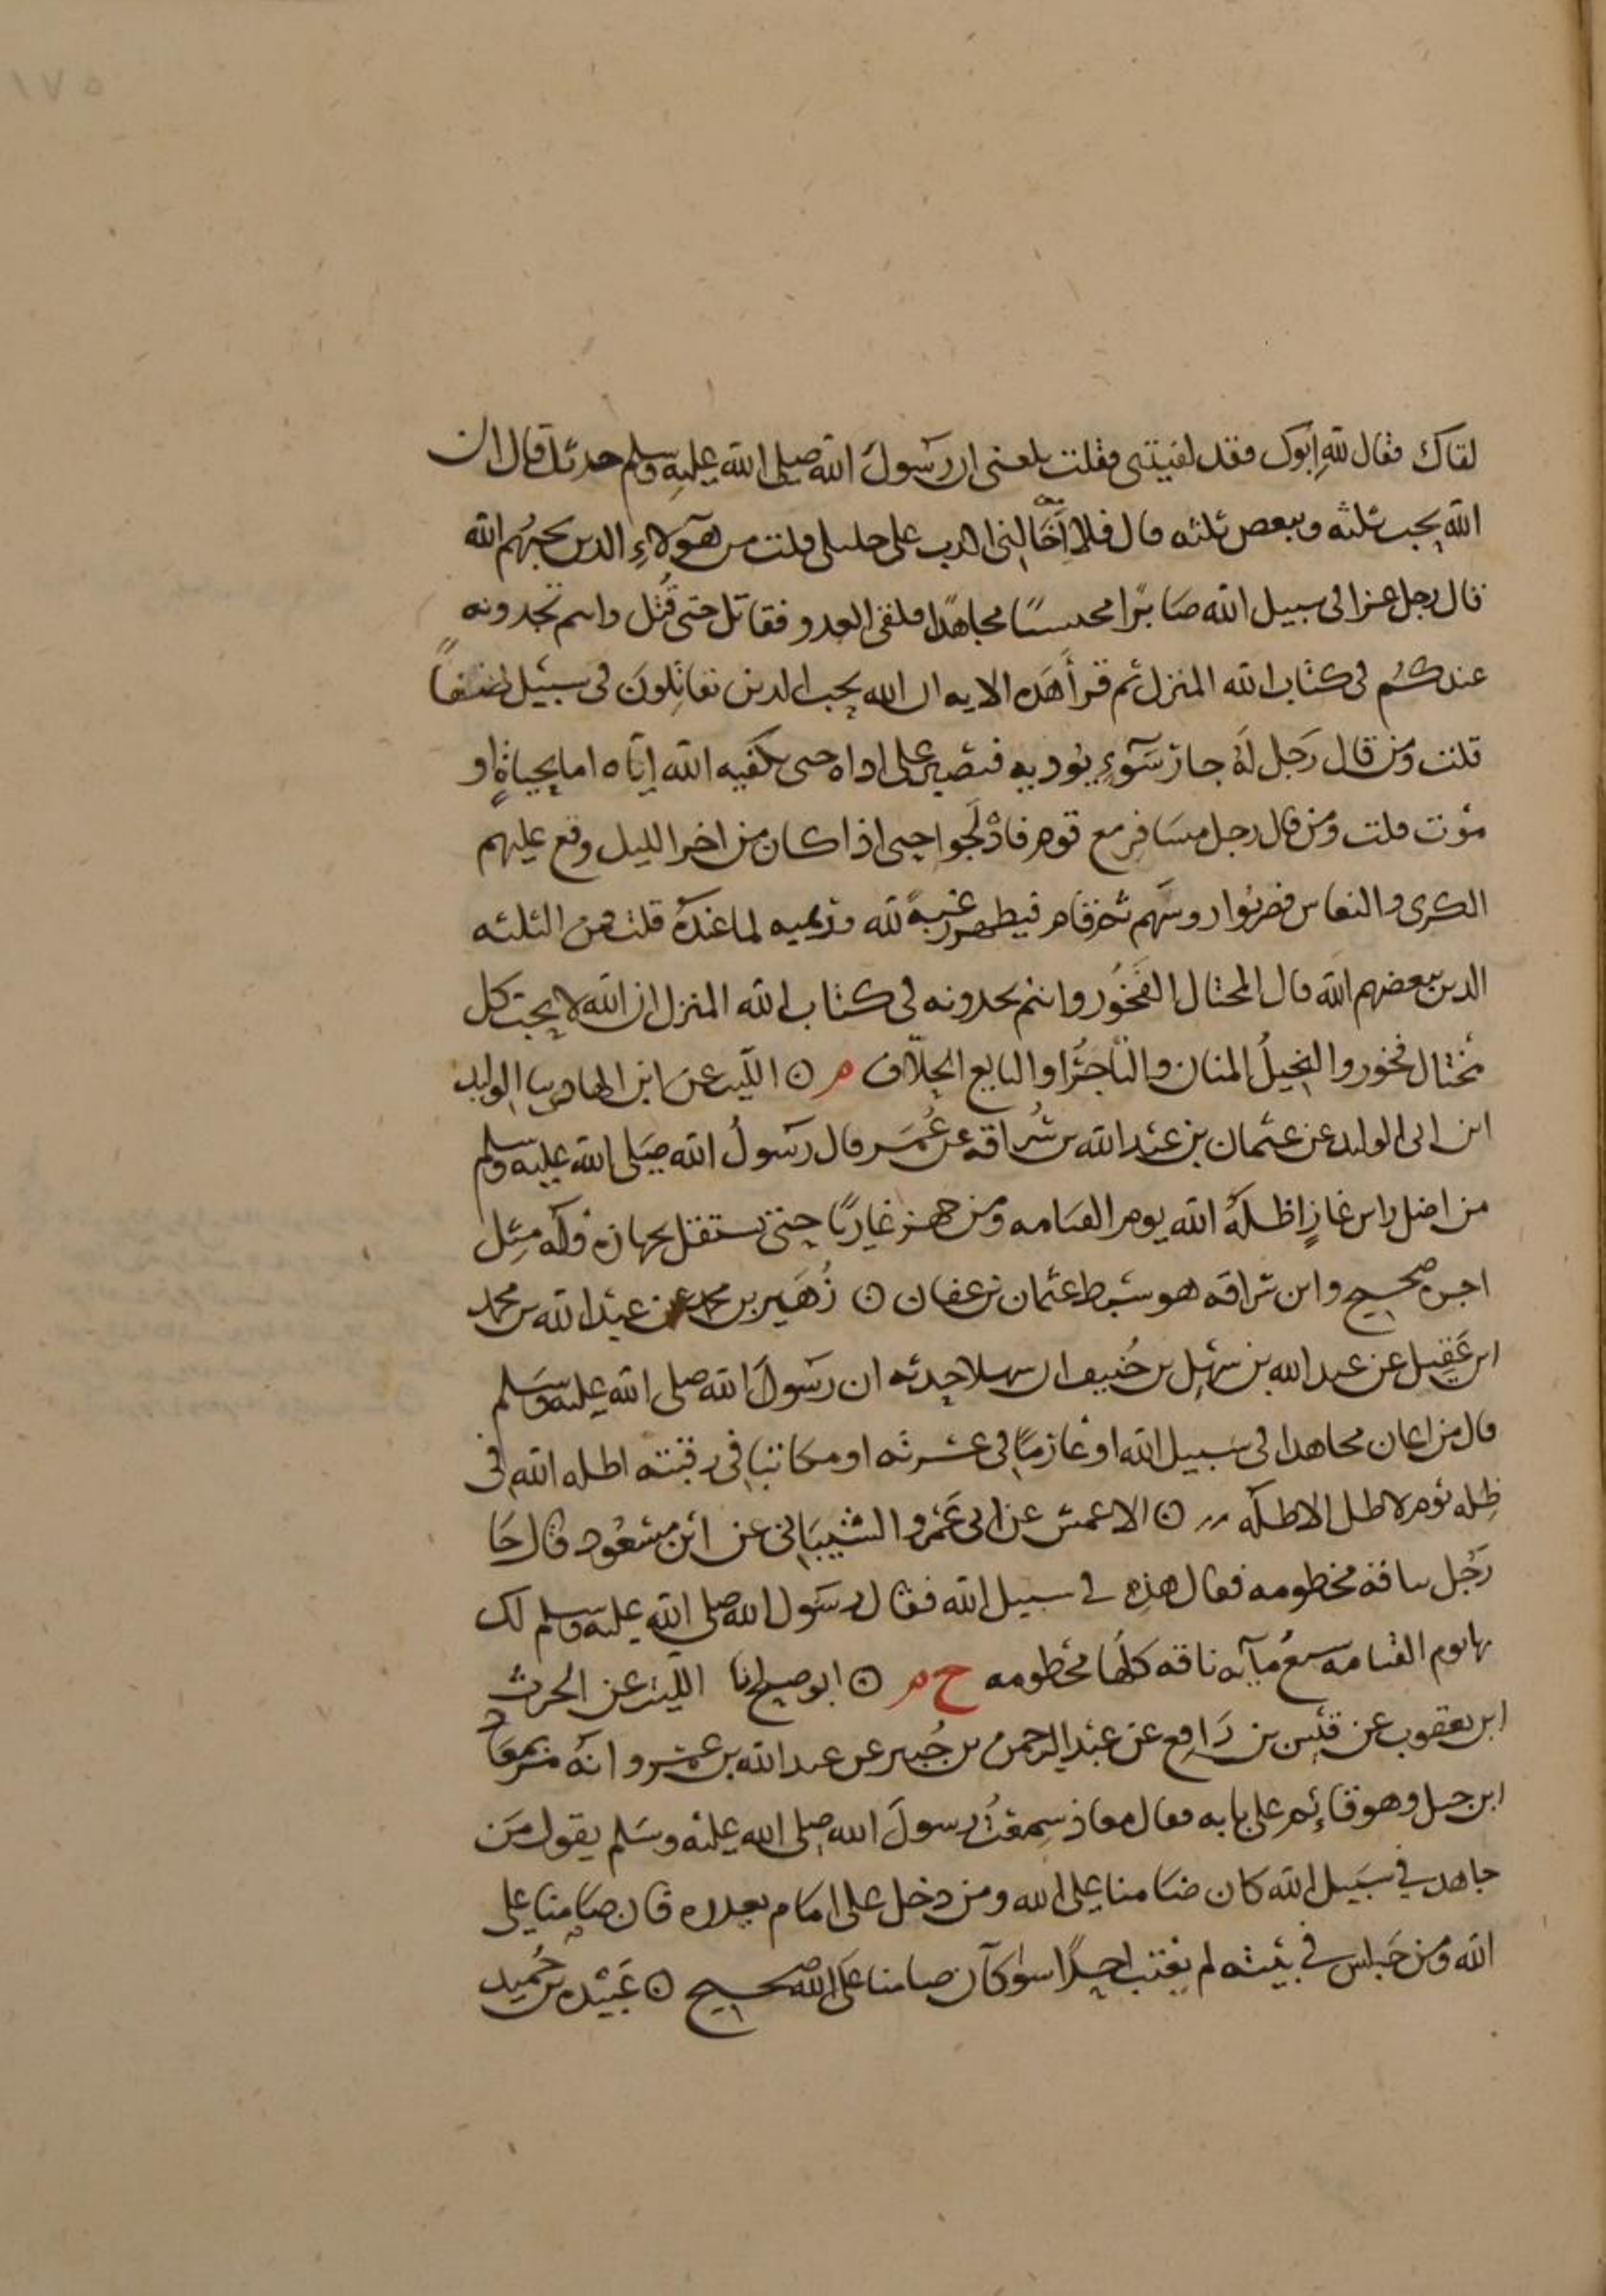 لقاك فقال لله ابوك فقد لقيتنى فقلت بلغنى ان رسول الله صلى الله عليه وسلم حدثك قال ان
الله يحب ثلثه ويبغض ثلثه قال فلا اخالنى اكذب على خليلى قلت من هولاء الذين يحبهم الله
قال رجل غزا فى سبيل الله صابرا محتسبا مجاهدا فلقى العدو فقاتل حتى قتل وانتم تجدونه
عندكم فى كتاب الله المنزل ثم قرأ هذه الايه ان الله يحب الذين يقاتلون فى سبيله صفا
قلت ومن قال رجل له جار سوء يوذيه فيصبر على اذاه حتى يكفيه الله اياه اما بحياة او
موت قلت ومن قال رجل مسافر مع قوم فادلجوا حتى اذا كان من اخر الليل وقع عليهم
الكرى والنعاس فضربوا روسهم ثم قام فيطهر رهبة لله ورغبه لما عنده قلت فمن الثلثه
الذين يبغضهم الله قال المختال الفخور وانتم تجدونه فى كتاب الله المنزل ان الله لا يحب كل
مختال فخور والبخيل المنان والتاجر او البايع الحلاف م ۞ الليث عن ابن الهاد عن الوليد
ابن ابى الوليد عن عثمان بن عبد الله بن سراقه عن عمر قال رسول الله صلى الله عليه وسلم
من اظل راس غاز اظله الله يوم القيامه ومن جهز غازيا حتى يستقل بجهازه فله مثل
اجره صحيح وابن سراقه هو سبط عثمان بن عفان ۞ زهير بن محمد عن عبد الله بن محمد
ابن عقيل عن عبد الله بن سهل بن حنيف ان سهلا حدثه ان رسول الله صلى الله عليه وسلم
قال من اعان مجاهدا فى سبيل الله او غارما فى عسرته او مكاتبا فى رقبته اظله الله فى
ظله يوم لا ظل الا ظله ۞ الاعمش عن ابى عمرو الشيبانى عن ابن مسعود قال جا
رجل بناقة مخطومه فقال هذه فى سبيل الله فقال رسول الله صلى الله عليه وسلم لك
بها يوم القيامه سبع مايه ناقه كلها مخطومه خ م ۞ ابو صالح انا الليث عن الحرث
ابن يعقوب عن قيس بن رافع عن عبد الرحمن بن جبير عن عبد الله بن عمرو انه مر بمعاذ
ابن جبل وهو قائم على بابه فقال معاذ سمعت رسول الله صلى الله عليه وسلم يقول من
جاهد فى سبيل الله كان ضامنا على الله ومن دخل على امام يعزره كان ضامنا على
الله ومن جلس فى بيته لم يغتب احدا بسوء كان ضامنا على الله صحيح ۞ عبيده بن حميد